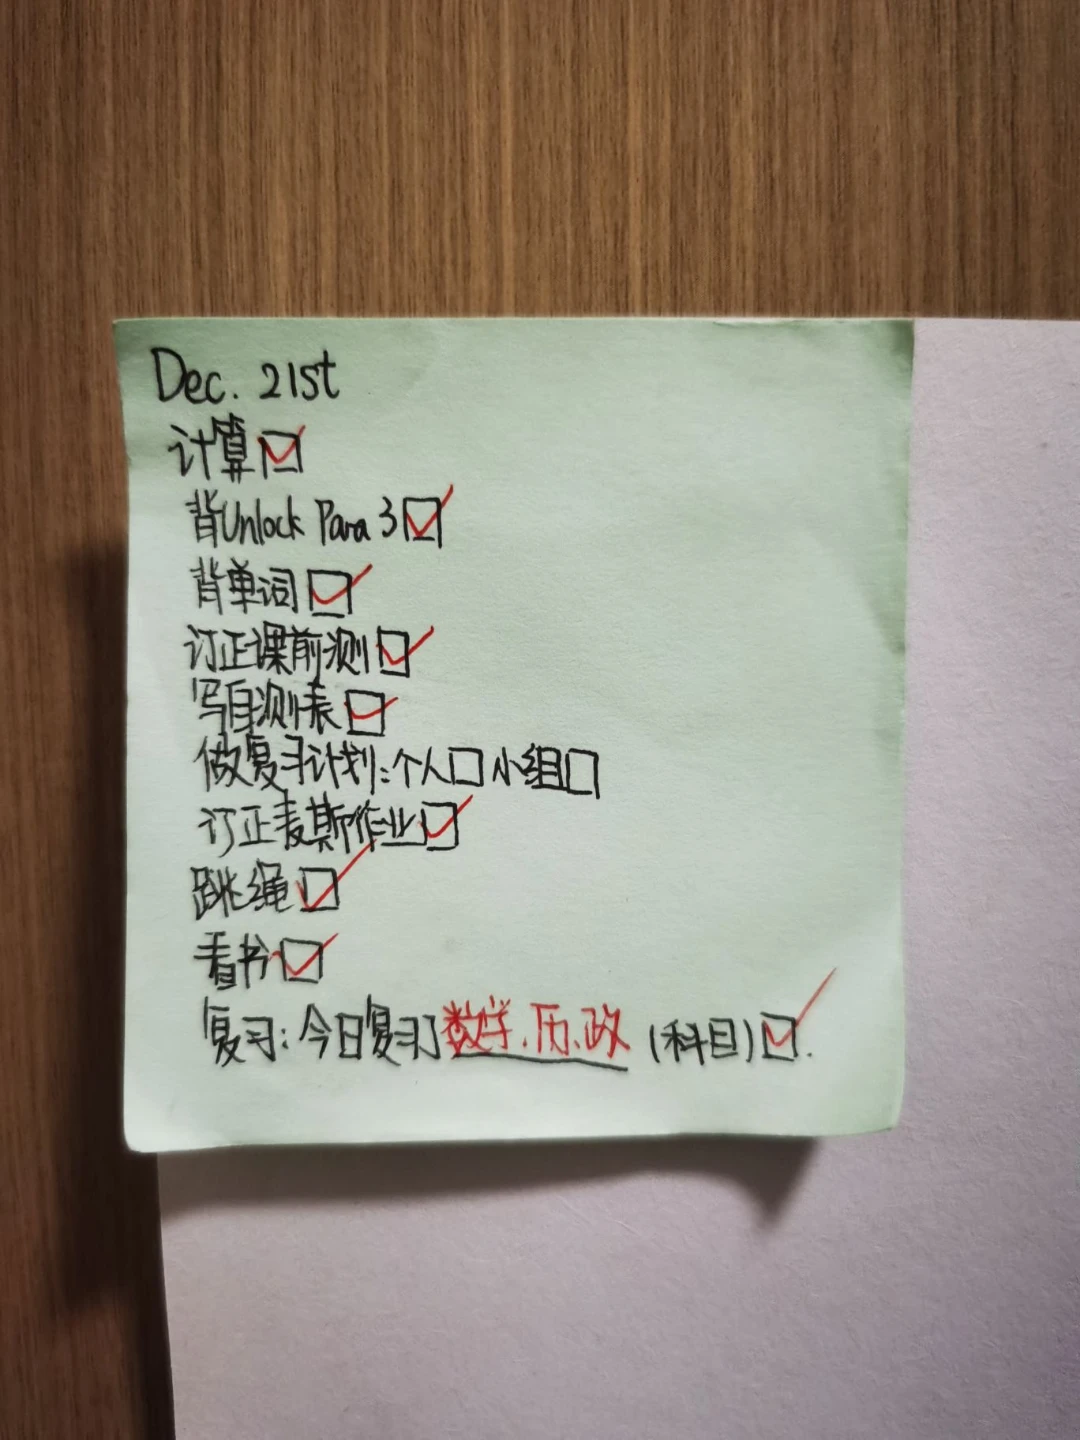 Dec. 21st
计算 ☑
背Unlock Para 3 ☑
背单词 ☑
订正课前测 ☑
写自测表 ☑
做复习计划:个人 ☐ 小组 ☐
订正麦斯作业 ☑
跳绳 ☑
看书 ☑
复习:今日复习了数学、历、政(科目) ☑.